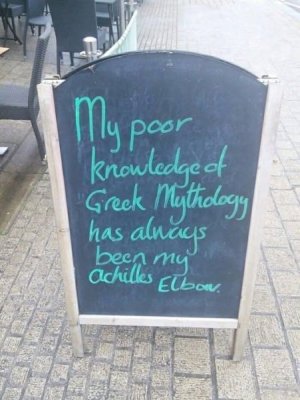 My poor
knowledge of
Greek Mythology
has always
been my
achilles Elbow.